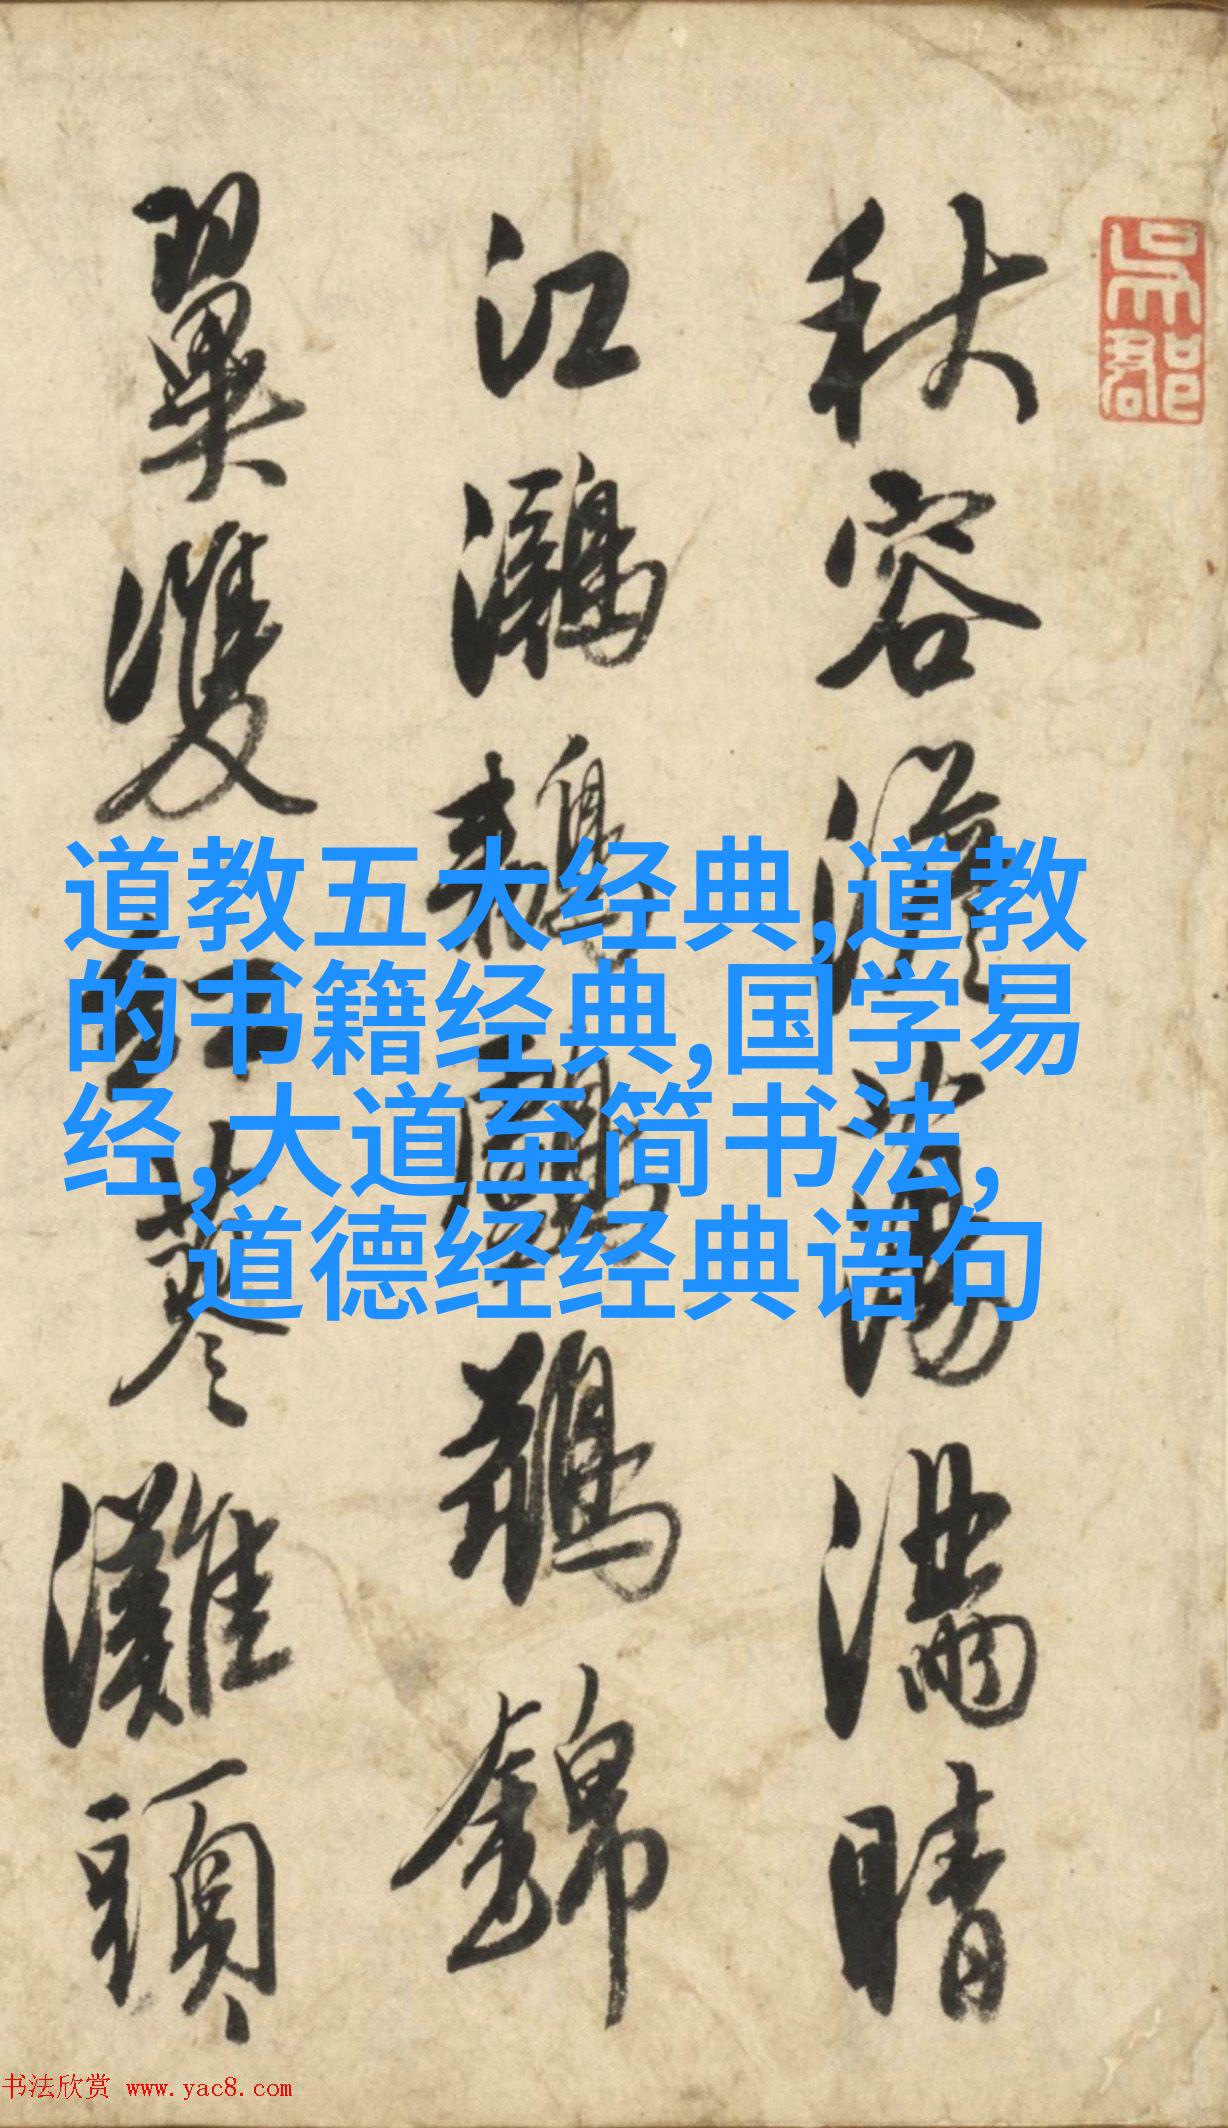 秋容澹蕩滿晴
江鸂鶒鶄錦
翼雙紅蓼灘頭
吳郡
道教五大经典,道教
的书籍经典,国学易
经,大道至简书法,
道德经经典语句
书法欣赏 www.yac8.com